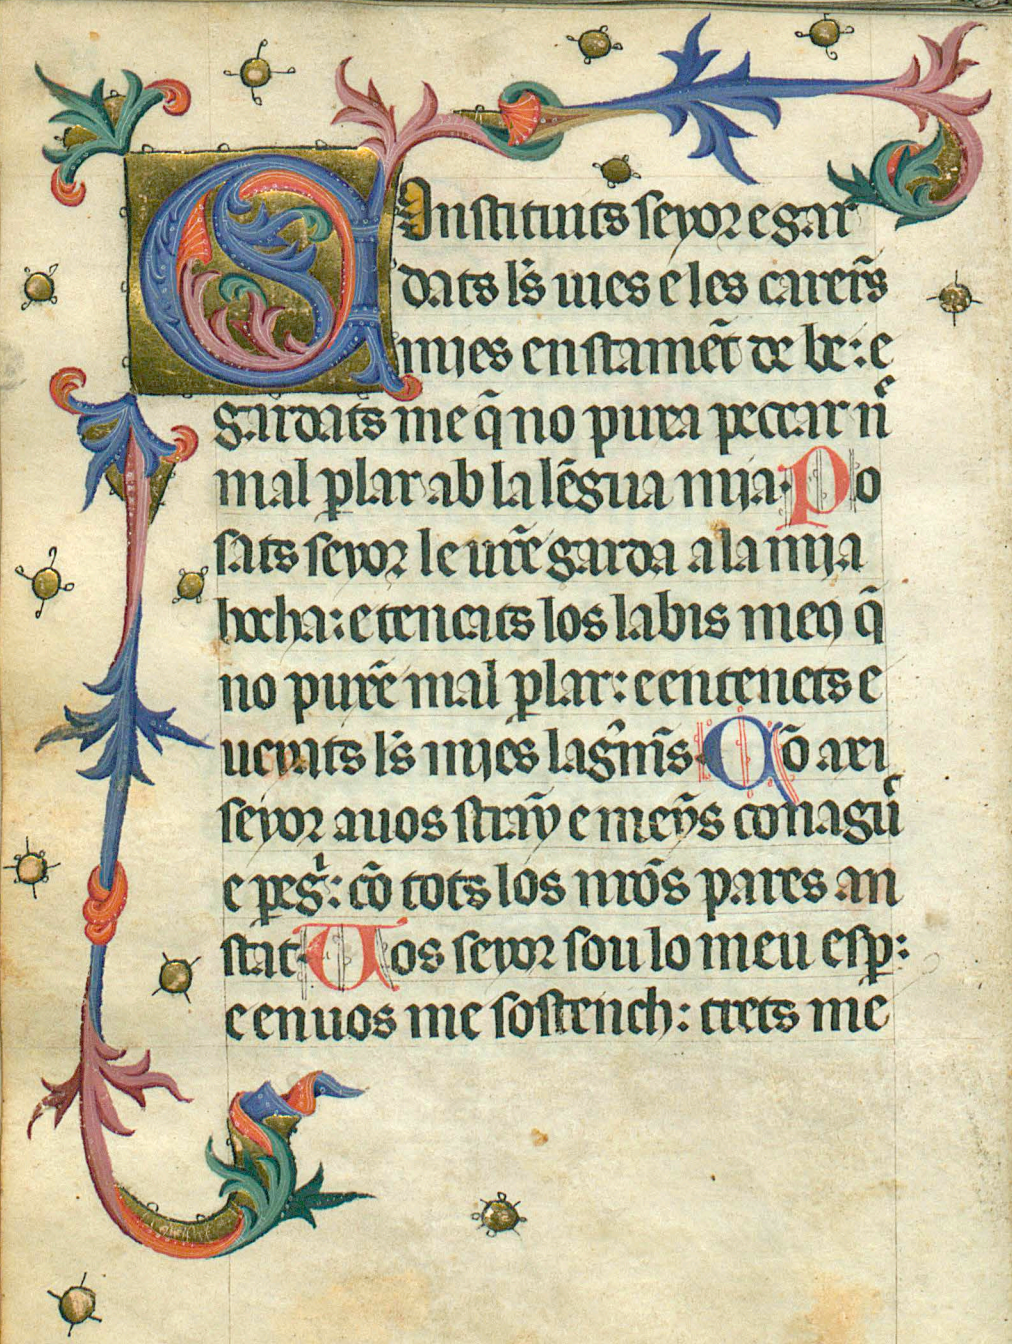 COnstituits seyor e gar
dats ls̄ uies e les carers̄
mijes enstamēt de be: e
gardats me q̄ no pura peccar ni
mal ꝑlar ab la lēgua mija. Po
sats seyor le ur̄e garda a la mija
bocha: e tencats los labis meꝯ q̄
no pur̄e mal ꝑlar: e entenets e
ueyats ls̄ mijes lagm̄s. Qō ari
seyor a uos strāy e meȳs conagut
e ꝑegi: cō tots los nrōs pares an
stat. Uos seyor sou lo meu esꝑ:
e en uos me sostench: trets me